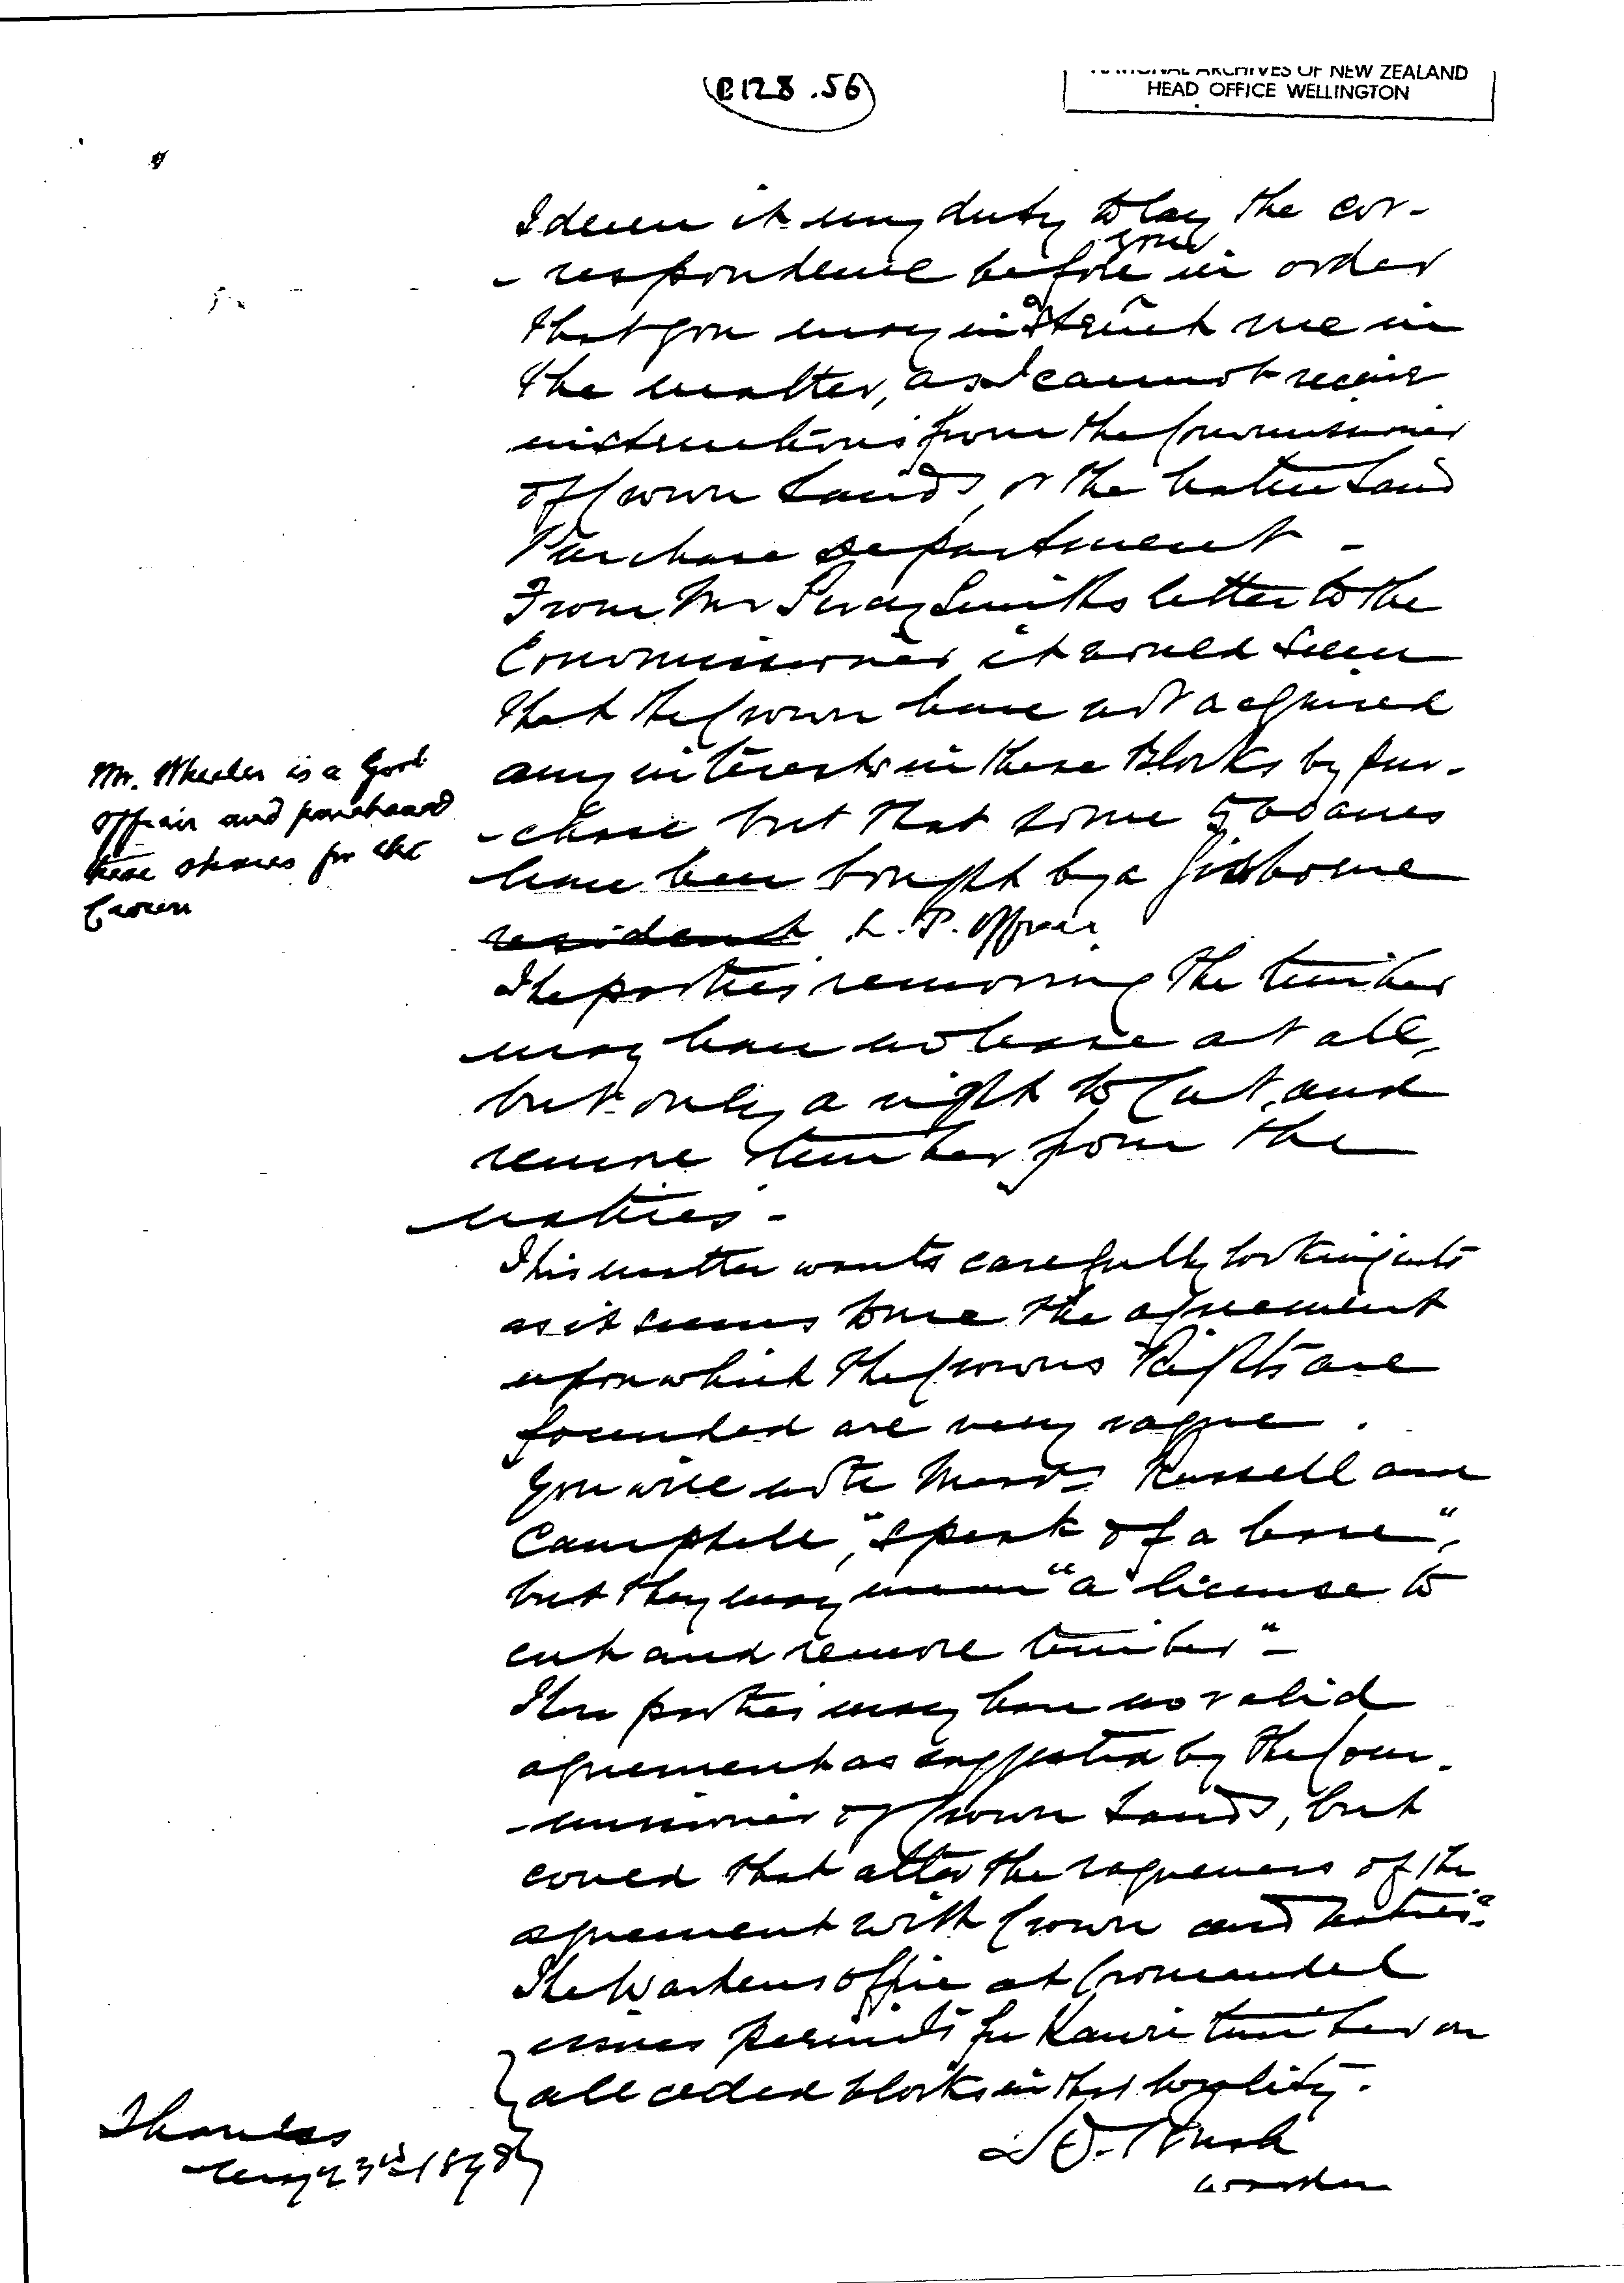 B128.56
NATIONAL ARCHIVES OF NEW ZEALAND
HEAD OFFICE WELLINGTON
I deem it my duty to lay the cor-
- respondence before you in order
that you may instruct me in
the matter, as I cannot receive
instructions from the Commissioner
of Crown Lands, or the Native Land
Purchase Department -
From Mr Percy Smiths letter to the
Commissioner it would seem
that the Crown have not acquired
any interests in these Blocks by pur-
- chase but that some acres
have been bought by a Gisborne
resident L. P. Officer
The parties removing the timber
may have no lease at all,
but only a right to Cut, and
remove timber from the
natives -
This matter wants carefully looking into
as it seems to me the agreement
upon which the Crowns Rights are
founded are very vague.
You will note Messrs Russell and
Campbell, "speak of a lease",
but they may mean "a license to
cut and remove timber" -
These parties may have no valid
agreement as suggested by the Com-
- missioner of Crown Lands, but
could that alter the vagueness of the
agreement with Crown and natives
The Wardens office at Coromandel
issues permits for Kauri timber on
all ceded blocks in that locality.
Mr. Wheeler is a Govt
Officer and purchased
these shares for the
Crown
Thames
23rd 1898
Bush
Warden